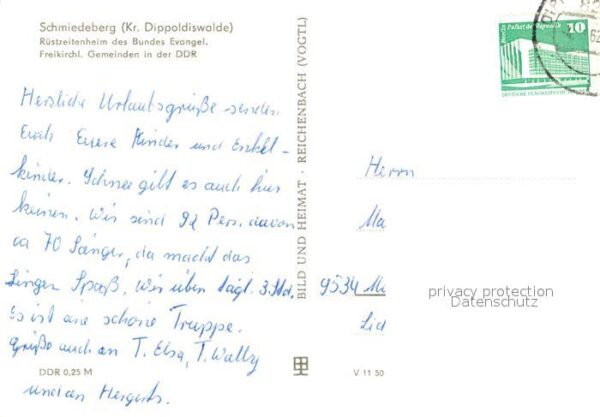 Schmiedeberg (Kr. Dippoldiswalde)
Rüstzeitenheim des Bundes Evangel.
Freikirchl. Gemeinden in der DDR
Herzliche Urlaubsgrüße senden
Euch Eure Kinder und Enkel-
kinder. Schnee gibt es auch hier
keinen. Wir sind 92 Pers. davon
ca 70 Sänger, da macht das
Singen Spaß. Wir üben tägl. 3 Std.
Es ist eine schöne Truppe.
Grüße auch an T. Elsa, T. Wally
und an
DDR 0,25 M
BILD UND HEIMAT · REICHENBACH (VOGTL)
V 11 50
Berlin Palast der Republik
10
Herrn
Ma
9534 Mi
privacy protection
Datenschutz